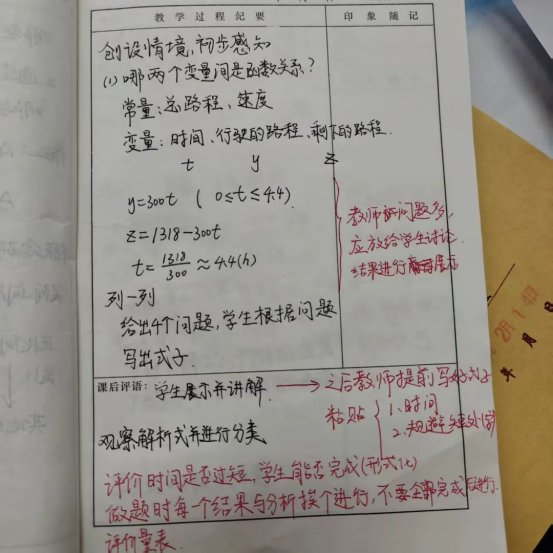 教学过程纪要 印象随记
创设情境,初步感知
(1)哪两个变量间是函数关系?
常量:总路程、速度
变量:时间、行驶的路程、剩下的路程.
t y z
y=300t ( 0≤t≤4.4)
z=1318-300t
t=1318/300≈4.4(h)
教师问题多,
应放给学生讨论
结果进行展示
列一列
给出4个问题,学生根据问题
写出式子.
课后评语:学生展示并讲解. → 之后教师提前写好式子
粘贴 { 1.时间
2.规避短处
观察解析式并进行分类
评价时间是否过短,学生能否完成(形式化)
做题时每个结果与分析挨个进行,不要全部完成后进行.
评价量表.
年 月 日